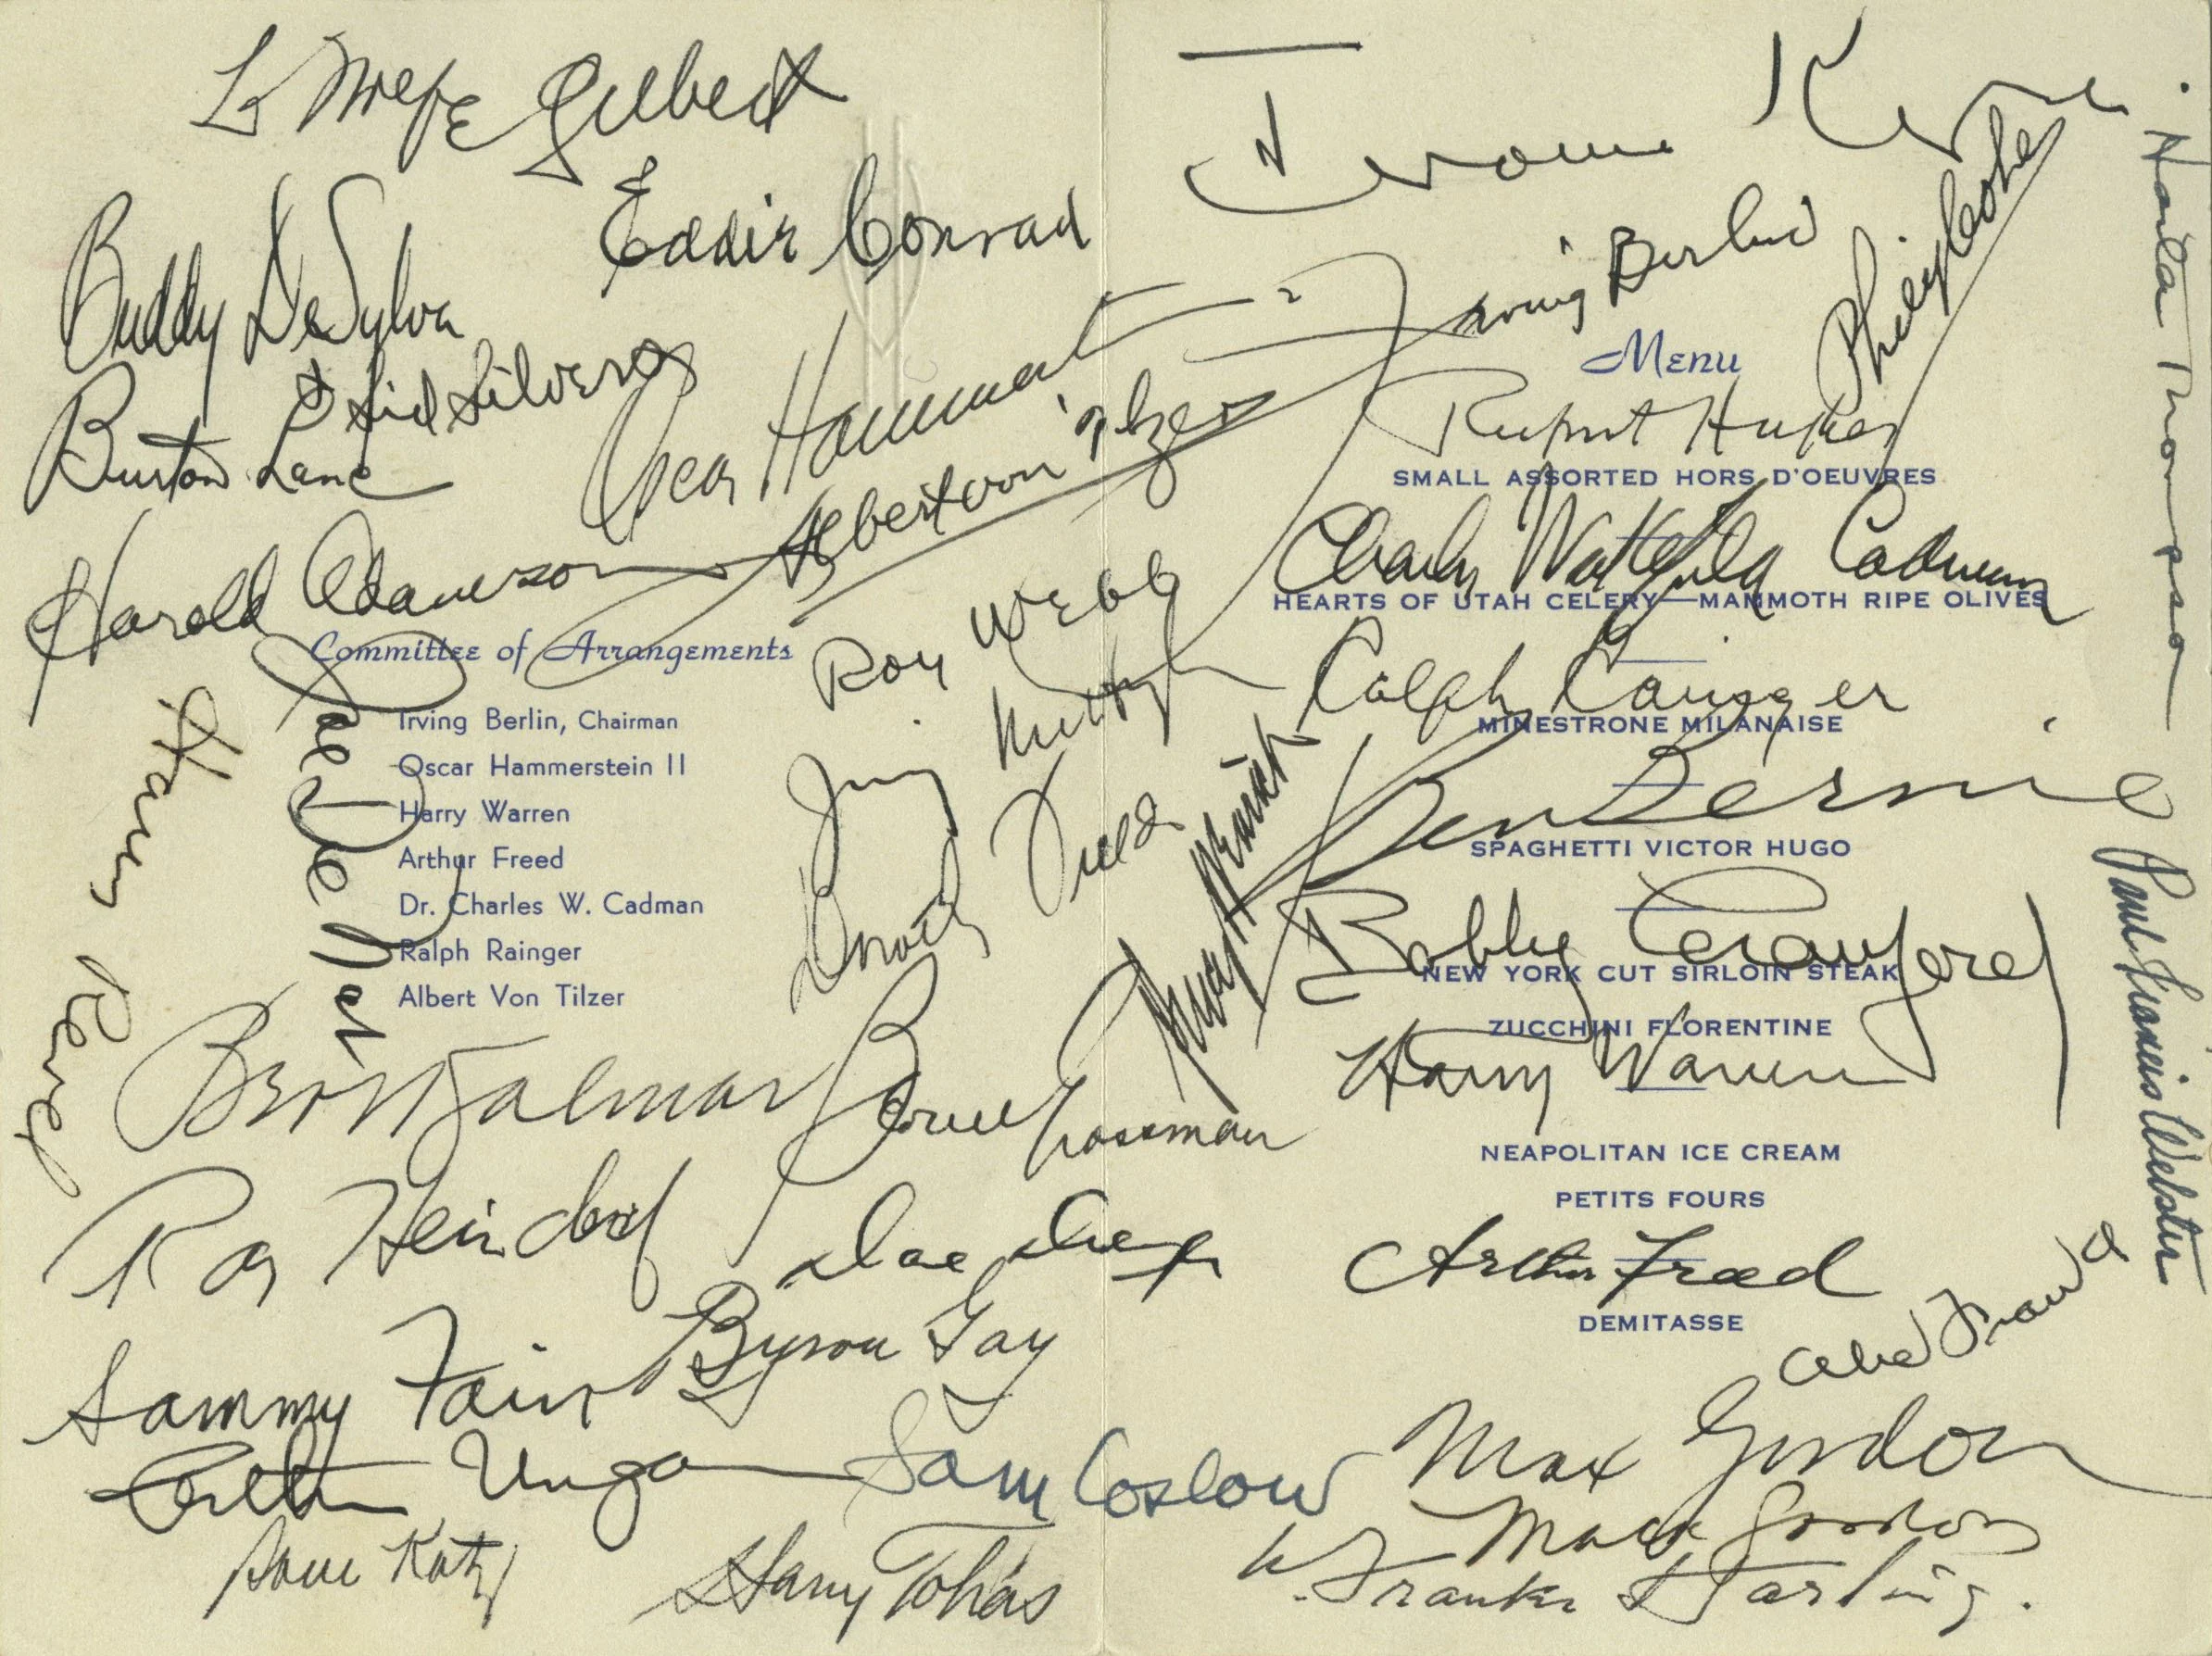 L Wolfe Gilbert
Eddie Conrad
Buddy DeSylva
Sid Silvers
Burton Lane
Oscar Hammerstein
Albert von Tilzer
Harold Adamson
Committee of Arrangements
Irving Berlin, Chairman
Oscar Hammerstein II
Harry Warren
Arthur Freed
Dr. Charles W. Cadman
Ralph Rainger
Albert Von Tilzer
Harry Revel
Roy Webb
Jimmy McHugh
Dorothy Fields
Bert Kalmar
Bernie Grossman
Ray Heindorf
Byron Gay
Sammy Fain
Arthur Ungar
Sam Coslow
Dave Katz
Harry Tobias
Jerome Kern
Irving Berlin
Menu
Rupert Hughes
SMALL ASSORTED HORS D'OEUVRES
Charles Wakefield Cadman
HEARTS OF UTAH CELERY—MAMMOTH RIPE OLIVES
Ralph Rainger
MINESTRONE MILANAISE
Ben Bernie
SPAGHETTI VICTOR HUGO
Bobby Crawford
NEW YORK CUT SIRLOIN STEAK
ZUCCHINI FLORENTINE
Harry Warren
NEAPOLITAN ICE CREAM
PETITS FOURS
Arthur Freed
DEMITASSE
Abe Frankl
Max Gordon
Mack Gordon
W. Franke Harling.
Harlan Thompson
Paul Francis Webster